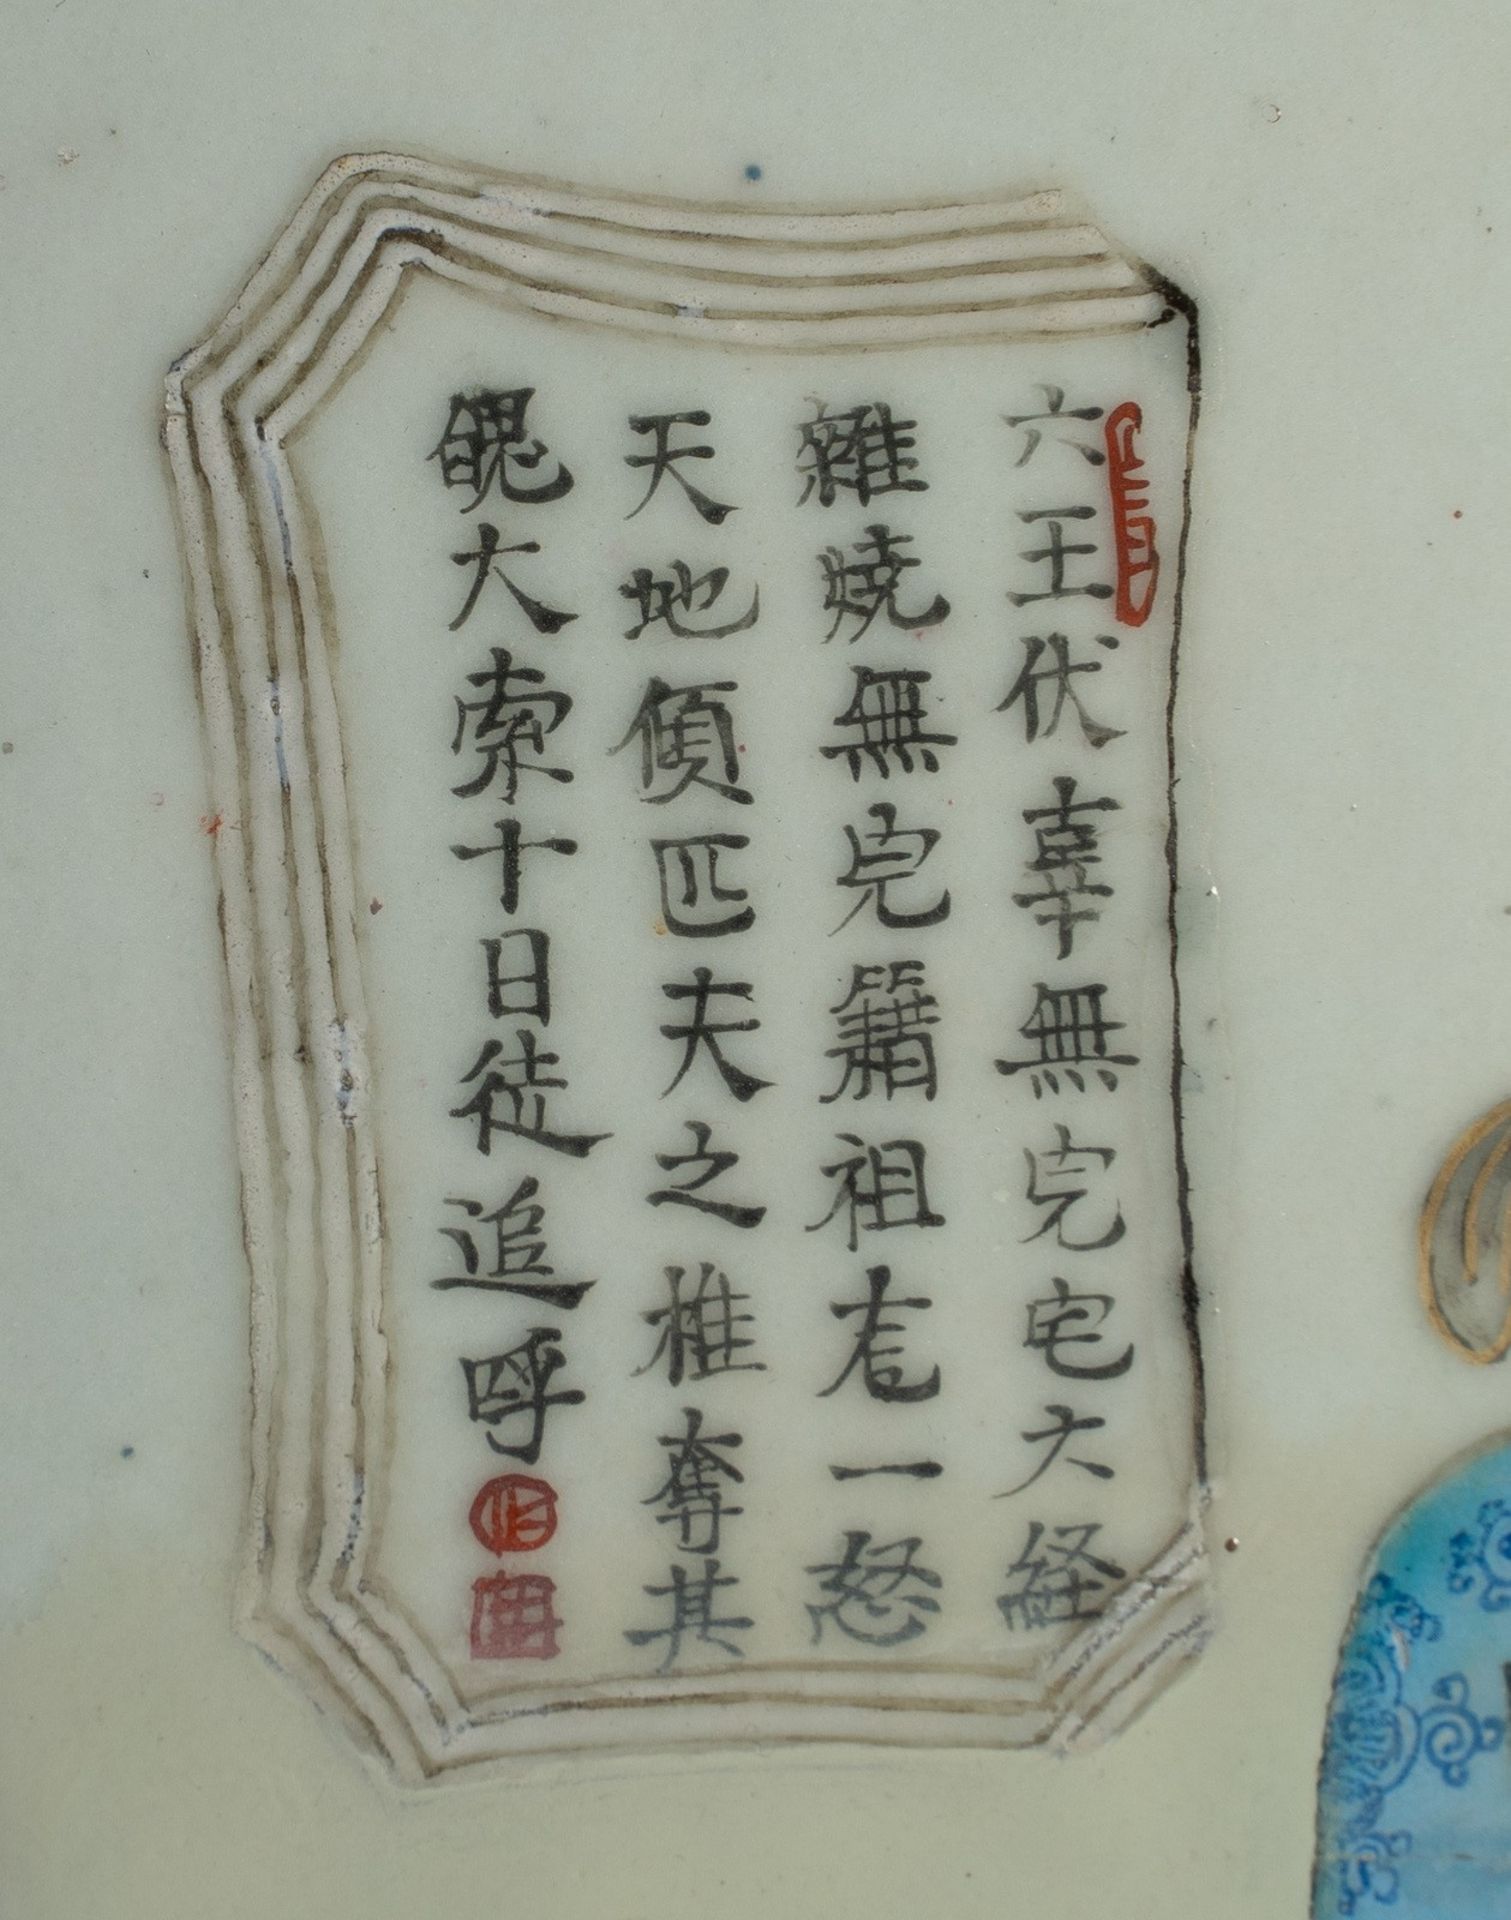 六王伏辜無完宅六経
雜焼無完籍祖龙一怒
天地傾匹夫之椎奪其
魄大索十日徒追呼